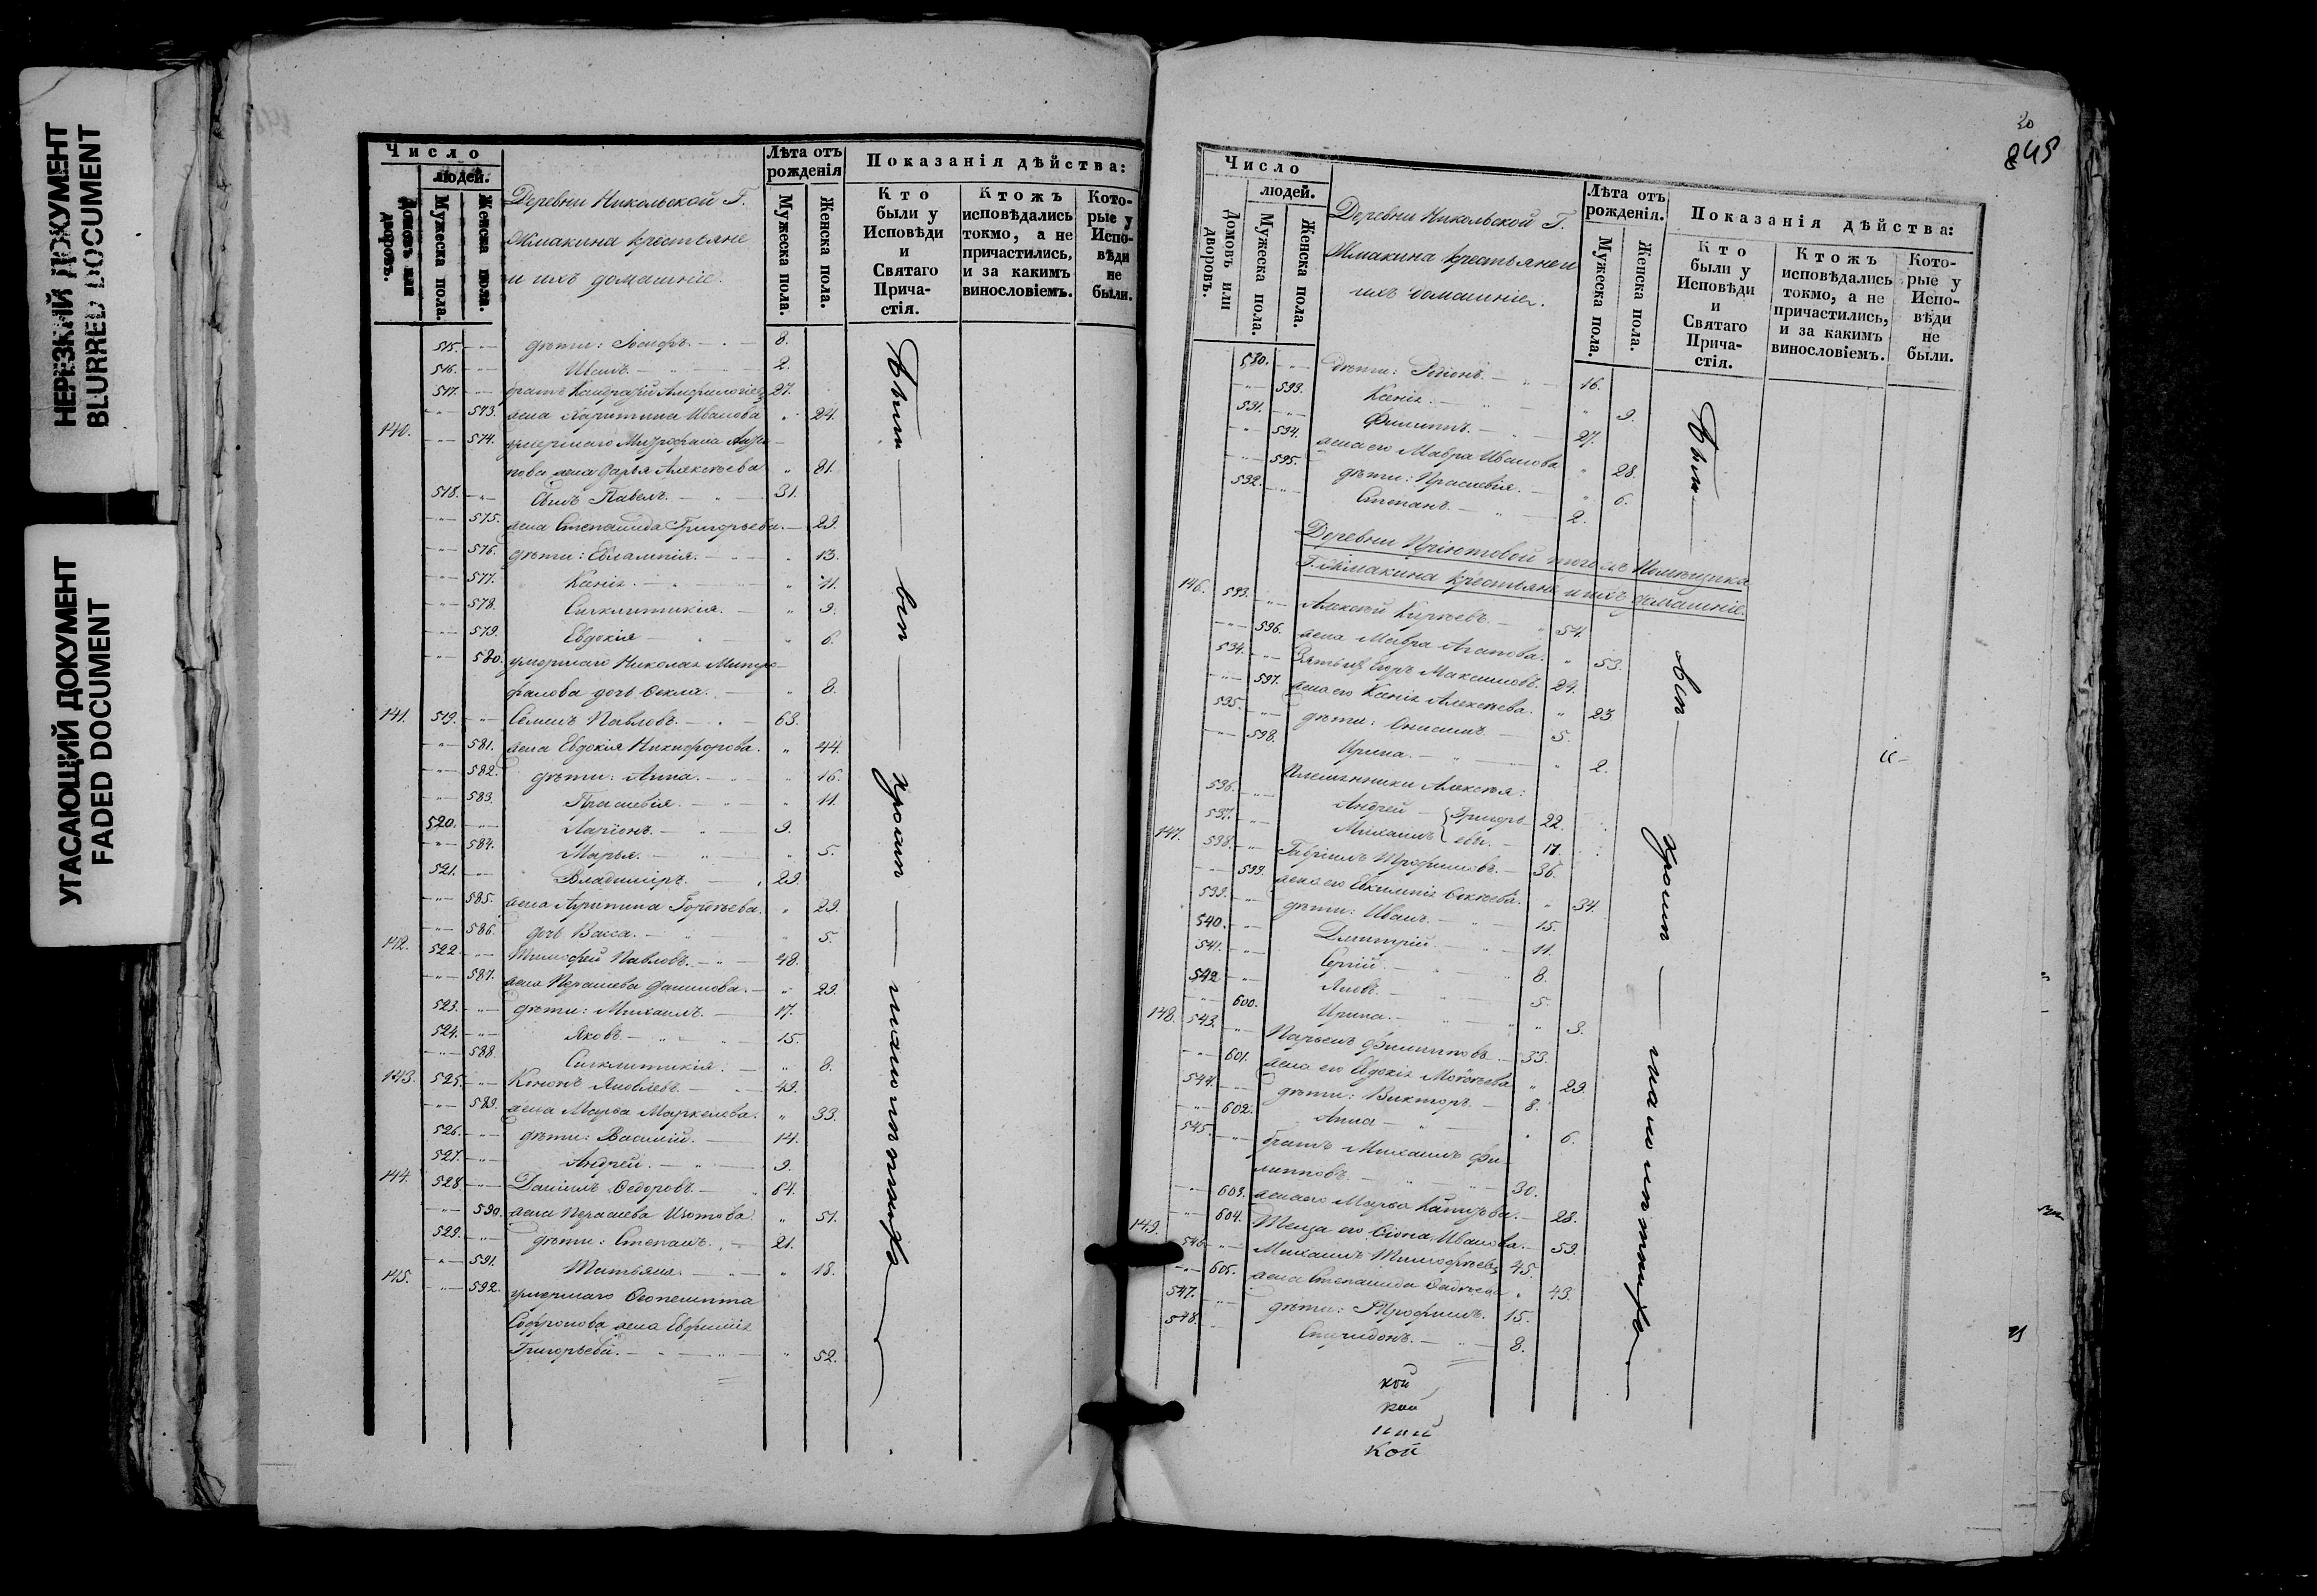 НЕРЕЗКИЙ ДОКУМЕНТ
BLURRED DOCUMENT
УГАСАЮЩИЙ ДОКУМЕНТ
FADED DOCUMENT
Число
людей.
домовъ или дворовъ.
Мужеска пола.
Женска пола.
Деревни Никольской Г.
Жмакина крестьяне
и ихъ домашніе.
Лѣта отъ рожденія
Мужеска пола.
Женска пола.
Показанія дѣйства:
Кто были у Исповѣди и Святаго Прича-стія.
Ктожъ исповѣдались токмо, а не причастились, и за какимъ винословіемъ.
Кото-рые у Испо-вѣди не были.
515. дѣти: Іосифъ. 8.
516. Иванъ. 2.
517. братъ 27.
573. жена Харитина Иванова 24.
140. 574. умершаго Митрофана
жена Дарья Алексѣева 81.
518. Сынъ Павелъ. 31.
575. жена Степанида Григорьева. 29.
576. дѣти: Евлампія. 13.
577. Ксенія. 11.
578. Синклитикія. 9.
579. Евдокія 6.
580. умершаго Николая Митро-
фанова дочь Ѳекла. 8.
141. 519. Семенъ Павловъ. 63.
581. жена Евдокія Никифорова. 44.
582. дѣти: Анна. 16.
583. Праскевія. 11.
520. Ларіонъ. 9.
584. Марья. 5.
521. Владиміръ. 29.
585. жена 29.
586. дочь Васса. 5.
142. 522. Тимофей Павловъ. 48.
587. жена 29.
523. дѣти: Михаилъ. 17.
524. Яковъ. 15.
588. Синклитикія. 8.
143. 525. Кононъ Яковлевъ. 49.
589. жена Марѳа Маркелова. 33.
526. дѣти: Василій. 14.
527. Андрей. 9.
144. 528. Даніилъ Ѳедоровъ. 64.
590. жена Изотова 51.
529. дѣти: Степанъ. 21.
591. Татьяна. 18.
145. 592. умершаго
Софронова жена Евфимія
Григорьева. 52.
были
20
845
Число
людей.
домовъ или дворовъ.
Мужеска пола.
Женска пола.
Деревни Никольской Г.
Жмакина крестьяне и
ихъ домашніе.
Лѣта отъ рожденія.
Мужеска пола.
Женска пола.
Показанія дѣйства:
Кто были у Исповѣди и Святаго Прича-стія.
Ктожъ исповѣдались токмо, а не причастились, и за какимъ винословіемъ.
Кото-рые у Испо-вѣди не были.
530. дѣти: Родіонъ. 16.
593. Ксенія. 9.
531. Филиппъ. 27.
594. жена его Мавра Иванова 28.
595. дѣти: Праскевія. 6.
532. Степанъ. 2.
Деревни Пріютовой того же Помѣщика
Г. Жмакина крестьяне и ихъ домашніе.
146. 533. Алексѣй 54.
596. жена Мавра Агапова. 53.
534. Зять ихъ Егоръ Максимовъ. 24.
597. жена его Ксенія Алексѣева. 23
535. дѣти: Онисимъ. 5.
598. Ирина. 2.
Племянники Алексѣя:
536. Андрей Григорь- 22.
537. Михаилъ евы. 17.
147. 538. Гавріилъ Трофимовъ. 36.
599. жена его 34.
539. дѣти: Иванъ. 15.
540. Дмитрій. 11.
541. Сергій. 8.
542 Яковъ. 5.
600. Ирина. 3.
148. 543. Филипповъ. 33.
601. жена его Евдокія 29.
544. дѣти: Викторъ. 8.
602. Анна 6.
545. братъ Михаилъ Фи-
липповъ. 30.
603. жена его Марѳа 28.
604. Теща его Иванова. 59.
149. 546. Михаилъ Тимофѣевъ 45.
605. жена Степанида 43.
547. дѣти: Трофимъ. 15.
548. Спиридонъ. 8.
были
кой
кой
кой